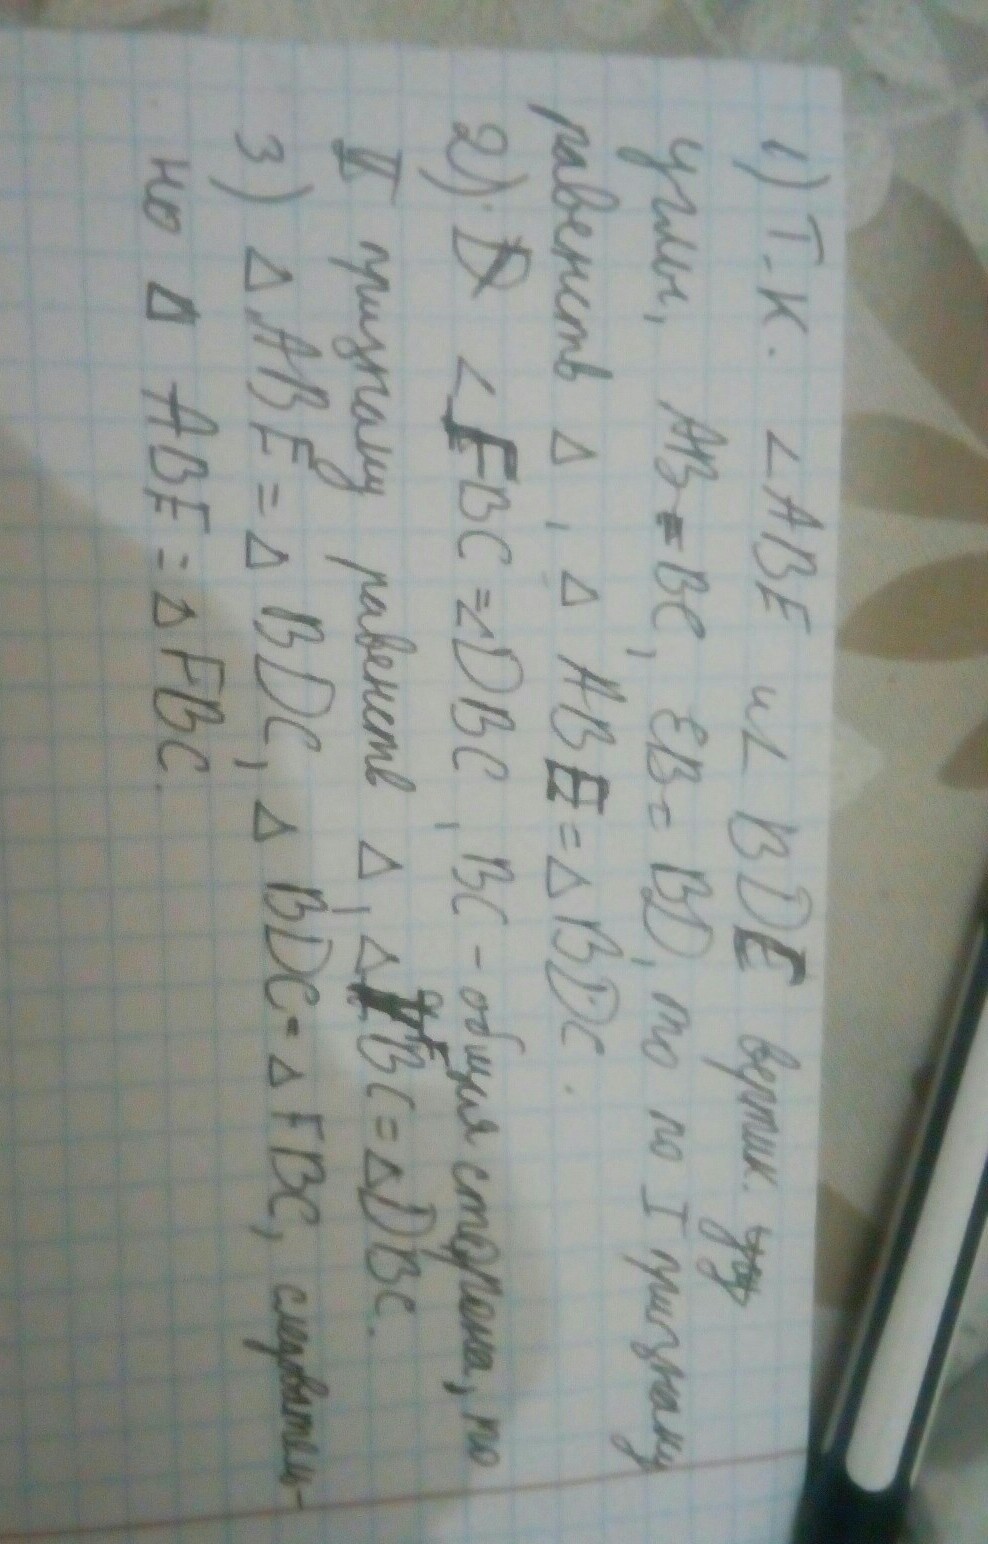 1) Т.К. ∠ABE и ∠ BDE вертик.
углы, AB=BC, EB= BD, то по I признаку
равенств Δ, Δ ABE = Δ BDC.
2) ∠FBC =∠DBC, BC - общая сторона, по
II признаку равенств Δ, Δ FBC = ΔDBC.
3) Δ ABE = Δ BDC, Δ BDC= Δ FBC, следователь-
но Δ ABE = Δ FBC.